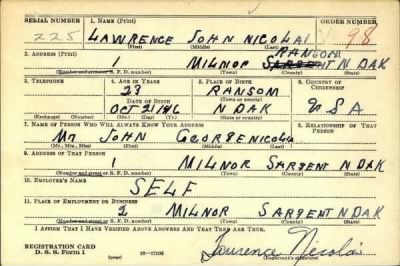 SERIAL NUMBER 1. NAME (Print) ORDER NUMBER
225 LAWRENCE JOHN NICOLAI 98
(First) (Middle) (Last)
2. ADDRESS (Print) RANSOM
1 MILNOR SARGENT N DAK
(Number and street or R. F. D. number) (Town) (County) (State)
3. TELEPHONE 4. AGE IN YEARS 5. PLACE OF BIRTH 6. COUNTRY OF CITIZENSHIP
23 RANSOM
(Town or county)
DATE OF BIRTH
OCT 21 1916 N DAK U S A
(Exchange) (Number) (Mo.) (Day) (Yr.) (State or country)
7. NAME OF PERSON WHO WILL ALWAYS KNOW YOUR ADDRESS 8. RELATIONSHIP OF THAT PERSON
Mr JOHN GEORGE NICOLAI
(Mr., Mrs., Miss) (First) (Middle) (Last)
9. ADDRESS OF THAT PERSON
1 MILNOR SARGENT N DAK
(Number and street or R. F. D. number) (Town) (County) (State)
10. EMPLOYER'S NAME
SELF
11. PLACE OF EMPLOYMENT OR BUSINESS
2 MILNOR SARGENT N DAK
(Number and street or R. F. D. number) (Town) (County) (State)
I AFFIRM THAT I HAVE VERIFIED ABOVE ANSWERS AND THAT THEY ARE TRUE.
REGISTRATION CARD
D. S. S. Form 1 (over) 16—17105 Lawrence Nicolai